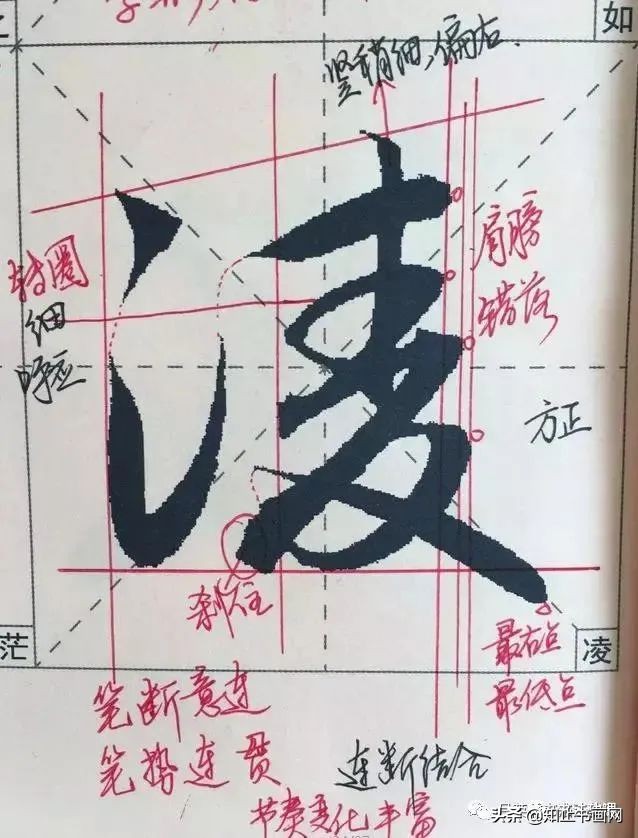 如
竖稍细,偏右.
凌
转圈
细
呼应
肩膀
错落
方正
刹住
最右点
最低点
茫
凌
笔断意连
笔势连贯
连断结合
节奏变化丰富
头条 @知正书画网